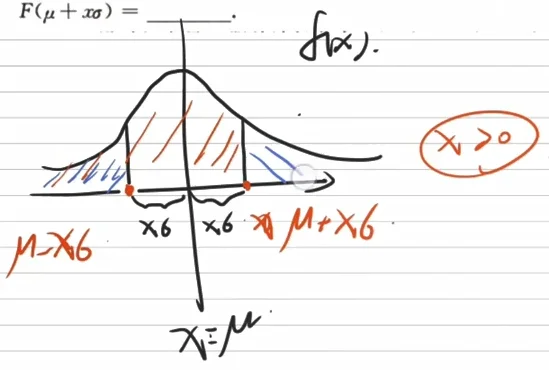 F(μ + xσ) = ________.
f(x).
x > 0
xσ xσ μ + xσ
μ - xσ
x = μ